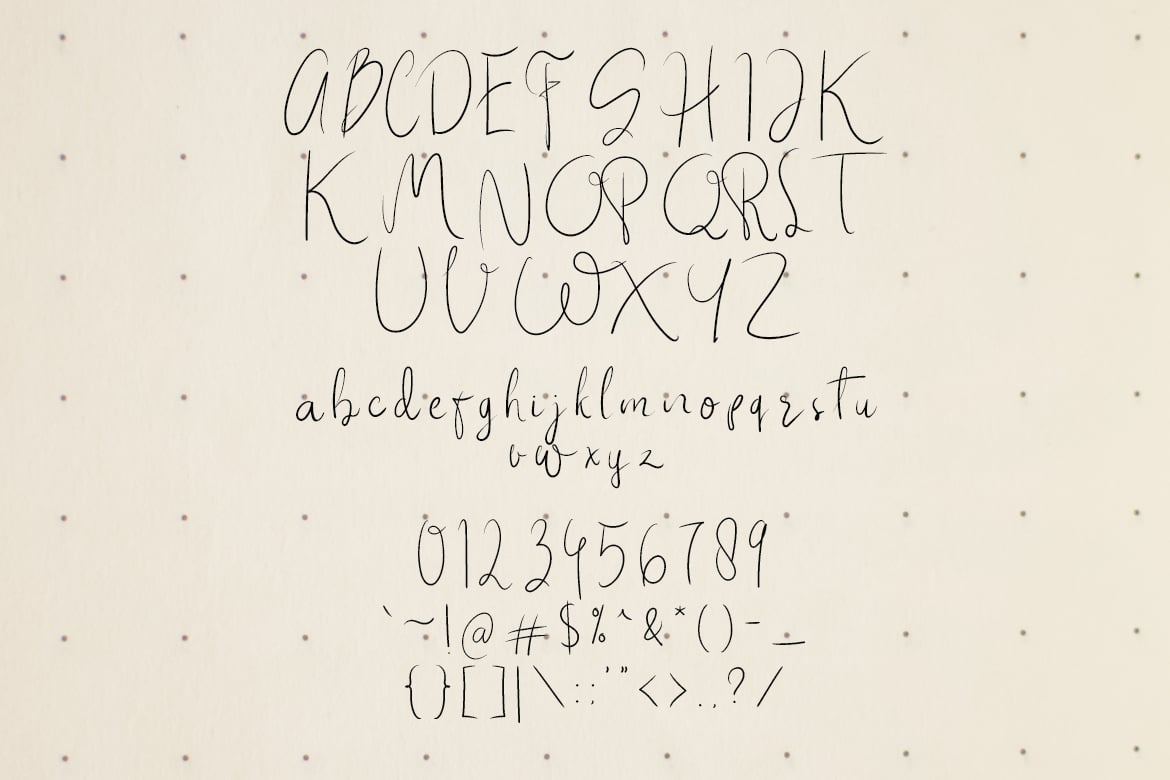 ABCDEFGHIJK
KMNOPQRST
UVWXYZ
abcdefghijklmnopqrstu
vwxyz
0123456789
`~!@#$%^&*()-_
{}[]|\:;'"<>.,?/